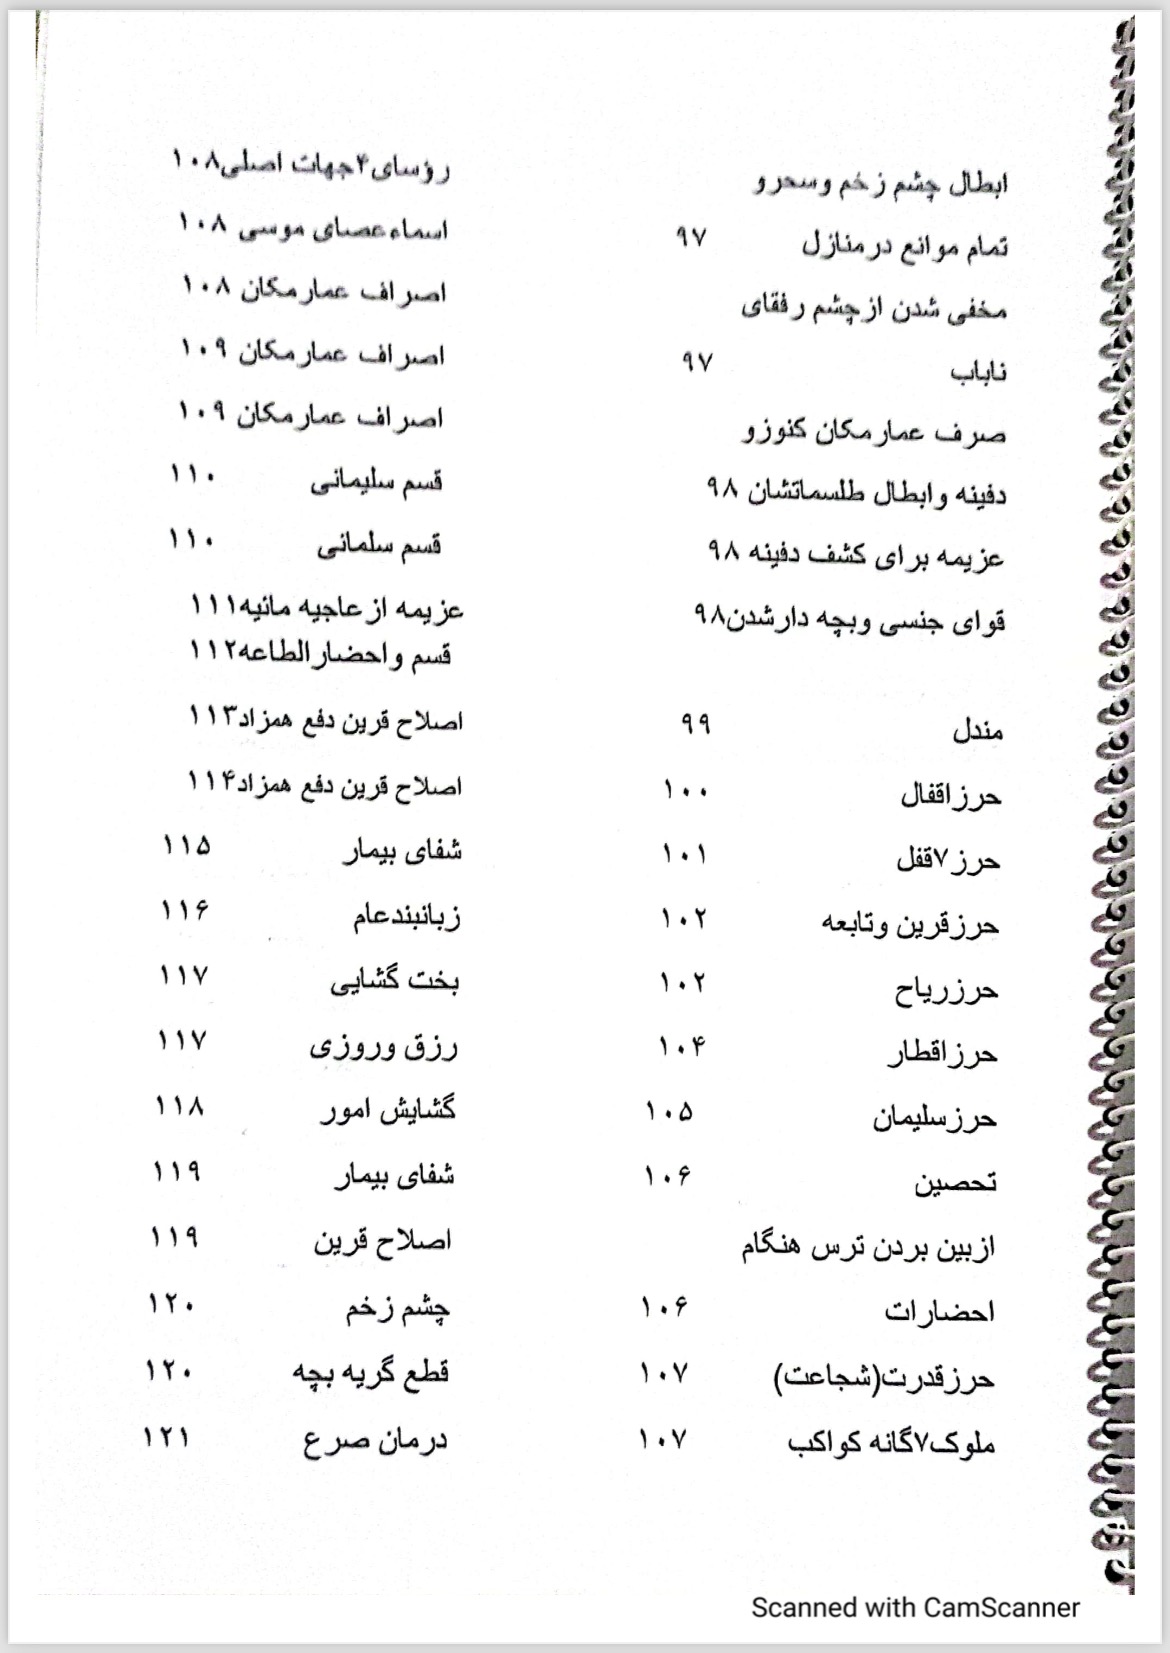 ابطال چشم زخم وسحرو
تمام موانع درمنازل ۹۷
مخفی شدن ازچشم رفقای
ناباب ۹۷
صرف عمارمکان کنوزو
دفینه وابطال طلسماتشان ۹۸
عزیمه برای کشف دفینه ۹۸
قوای جنسی وبچه دارشدن۹۸
مندل ۹۹
حرزاقفال ۱۰۰
حرز۷قفل ۱۰۱
حرزقرین وتابعه ۱۰۲
حرزریاح ۱۰۲
حرزاقطار ۱۰۴
حرزسلیمان ۱۰۵
تحصین ۱۰۶
ازبین بردن ترس هنگام
احضارات ۱۰۶
حرزقدرت(شجاعت) ۱۰۷
ملوک۷گانه کواکب ۱۰۷
رؤسای۴جهات اصلی۱۰۸
اسماءعصای موسی ۱۰۸
اصراف عمارمکان ۱۰۸
اصراف عمارمکان ۱۰۹
اصراف عمارمکان ۱۰۹
قسم سلیمانی ۱۱۰
قسم سلمانی ۱۱۰
عزیمه ازعاجیه مائیه۱۱۱
قسم واحضارالطاعه۱۱۲
اصلاح قرین دفع همزاد۱۱۳
اصلاح قرین دفع همزاد۱۱۴
شفای بیمار ۱۱۵
زبانبندعام ۱۱۶
بخت گشایی ۱۱۷
رزق وروزی ۱۱۷
گشایش امور ۱۱۸
شفای بیمار ۱۱۹
اصلاح قرین ۱۱۹
چشم زخم ۱۲۰
قطع گریه بچه ۱۲۰
درمان صرع ۱۲۱
Scanned with CamScanner